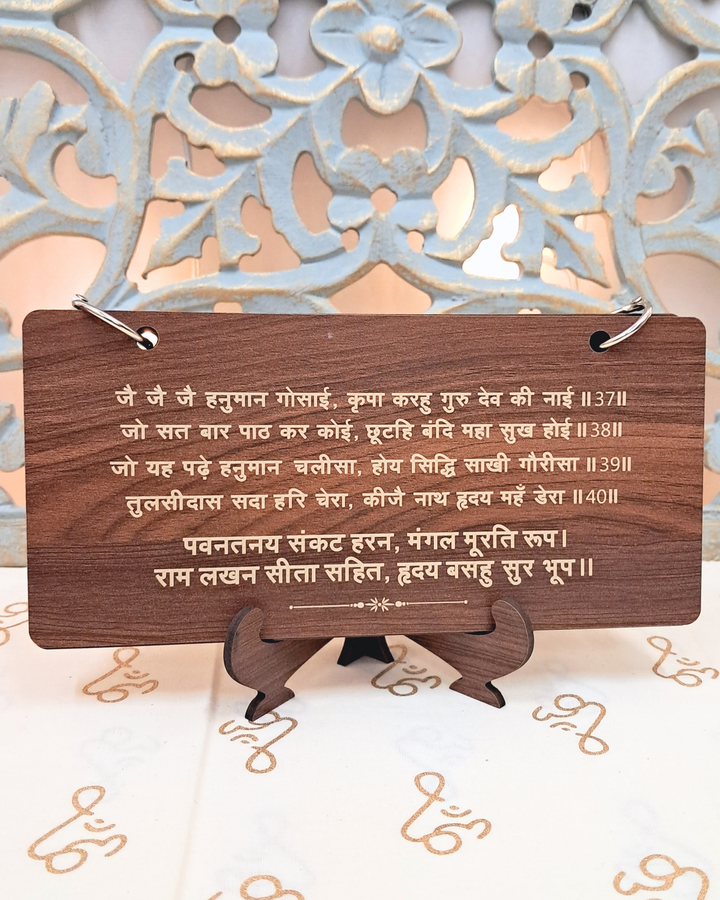 जै जै जै हनुमान गोसाई, कृपा करहु गुरु देव की नाई ॥37॥
जो सत बार पाठ कर कोई, छूटहि बंदि महा सुख होई ॥38॥
जो यह पढ़े हनुमान चलीसा, होय सिद्धि साखी गौरीसा ॥39॥
तुलसीदास सदा हरि चेरा, कीजै नाथ हृदय महँ डेरा ॥40॥
पवनतनय संकट हरन, मंगल मूरति रूप।
राम लखन सीता सहित, हृदय बसहु सुर भूप॥